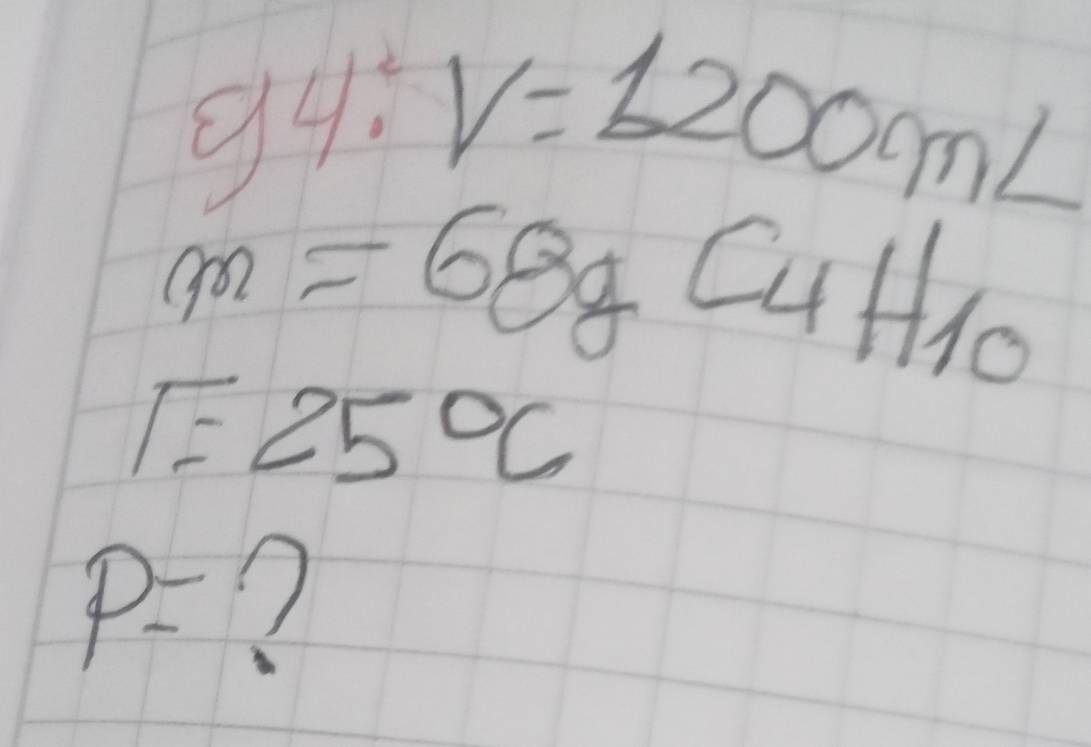 ej 4: V = 1200mL
m = 68g C4H10
T = 25°C
P = ?